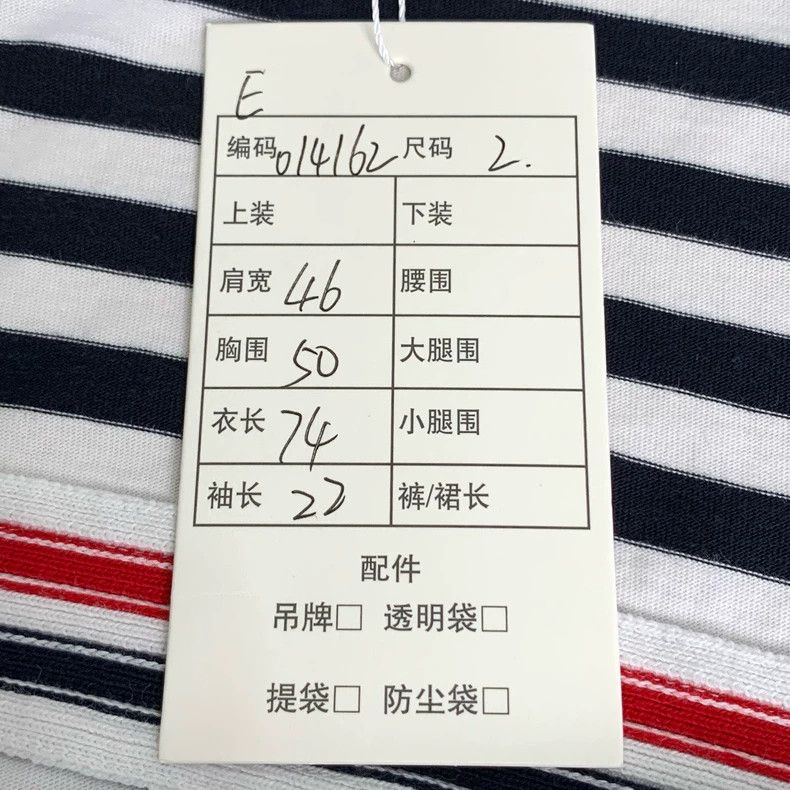 E
编码 014162 尺码 2.
上装 下装
肩宽 46 腰围
胸围 50 大腿围
衣长 74 小腿围
袖长 22 裤/裙长
配件
吊牌□ 透明袋□
提袋□ 防尘袋□